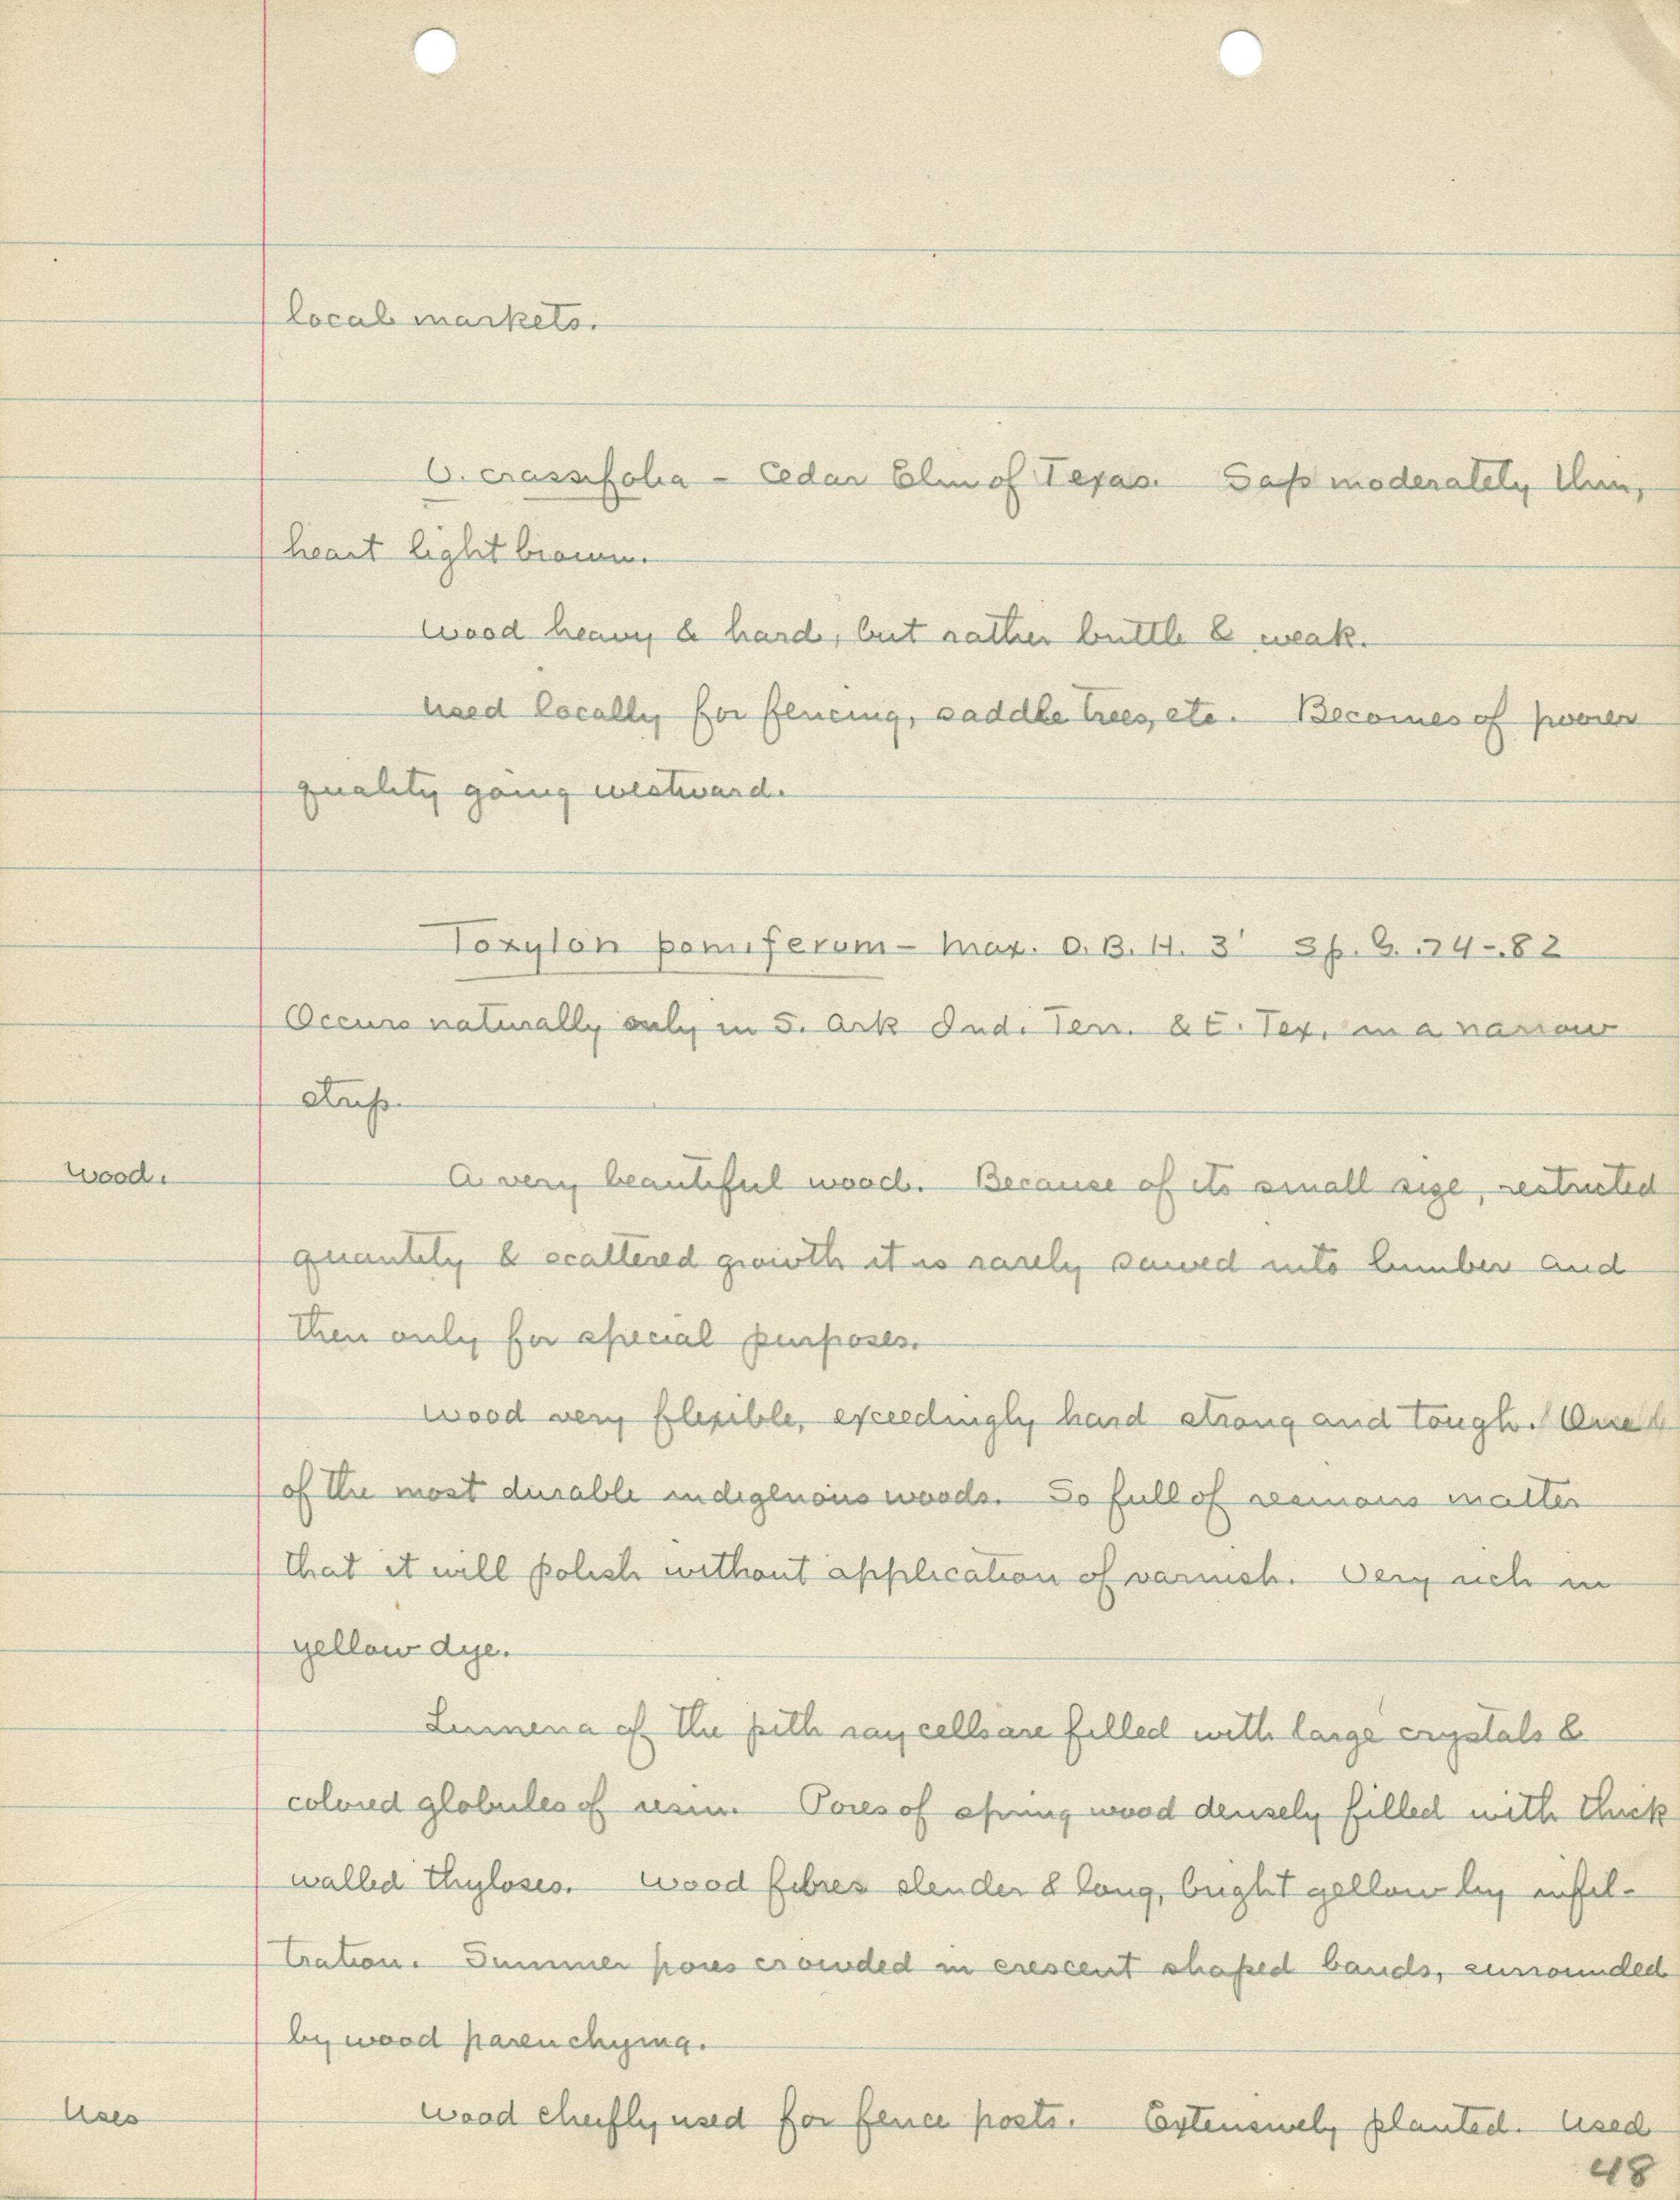 local markets.
U. crassifolia - Cedar Elm of Texas. Sap moderately thin,
heart light brown.
Wood heavy & hard, but rather brittle & weak.
Used locally for fencing, saddle trees, etc. Becomes of poorer
quality going westward.
Toxylon pomiferum - Max. D.B.H. 3' Sp. G. .74-.82
Occurs naturally only in S. Ark Ind. Terr. & E. Tex, in a narrow
strip.
Wood.
A very beautiful wood. Because of its small size, restricted
quantity & scattered growth it is rarely sawed into lumber and
then only for special purposes.
Wood very flexible, exceedingly hard strong and tough. One
of the most durable indigenous woods. So full of resinous matter
that it will polish without application of varnish. Very rich in
yellow dye.
Lumena of the pith ray cells are filled with large crystals &
colored globules of resin. Pores of spring wood densely filled with thick
walled thyloses. Wood fibres slender & long, bright yellow by infil-
tration. Summer pores crowded in crescent shaped bands, surrounded
by wood parenchyma.
Uses
Wood cheifly used for fence posts. Extensively planted. Used
48